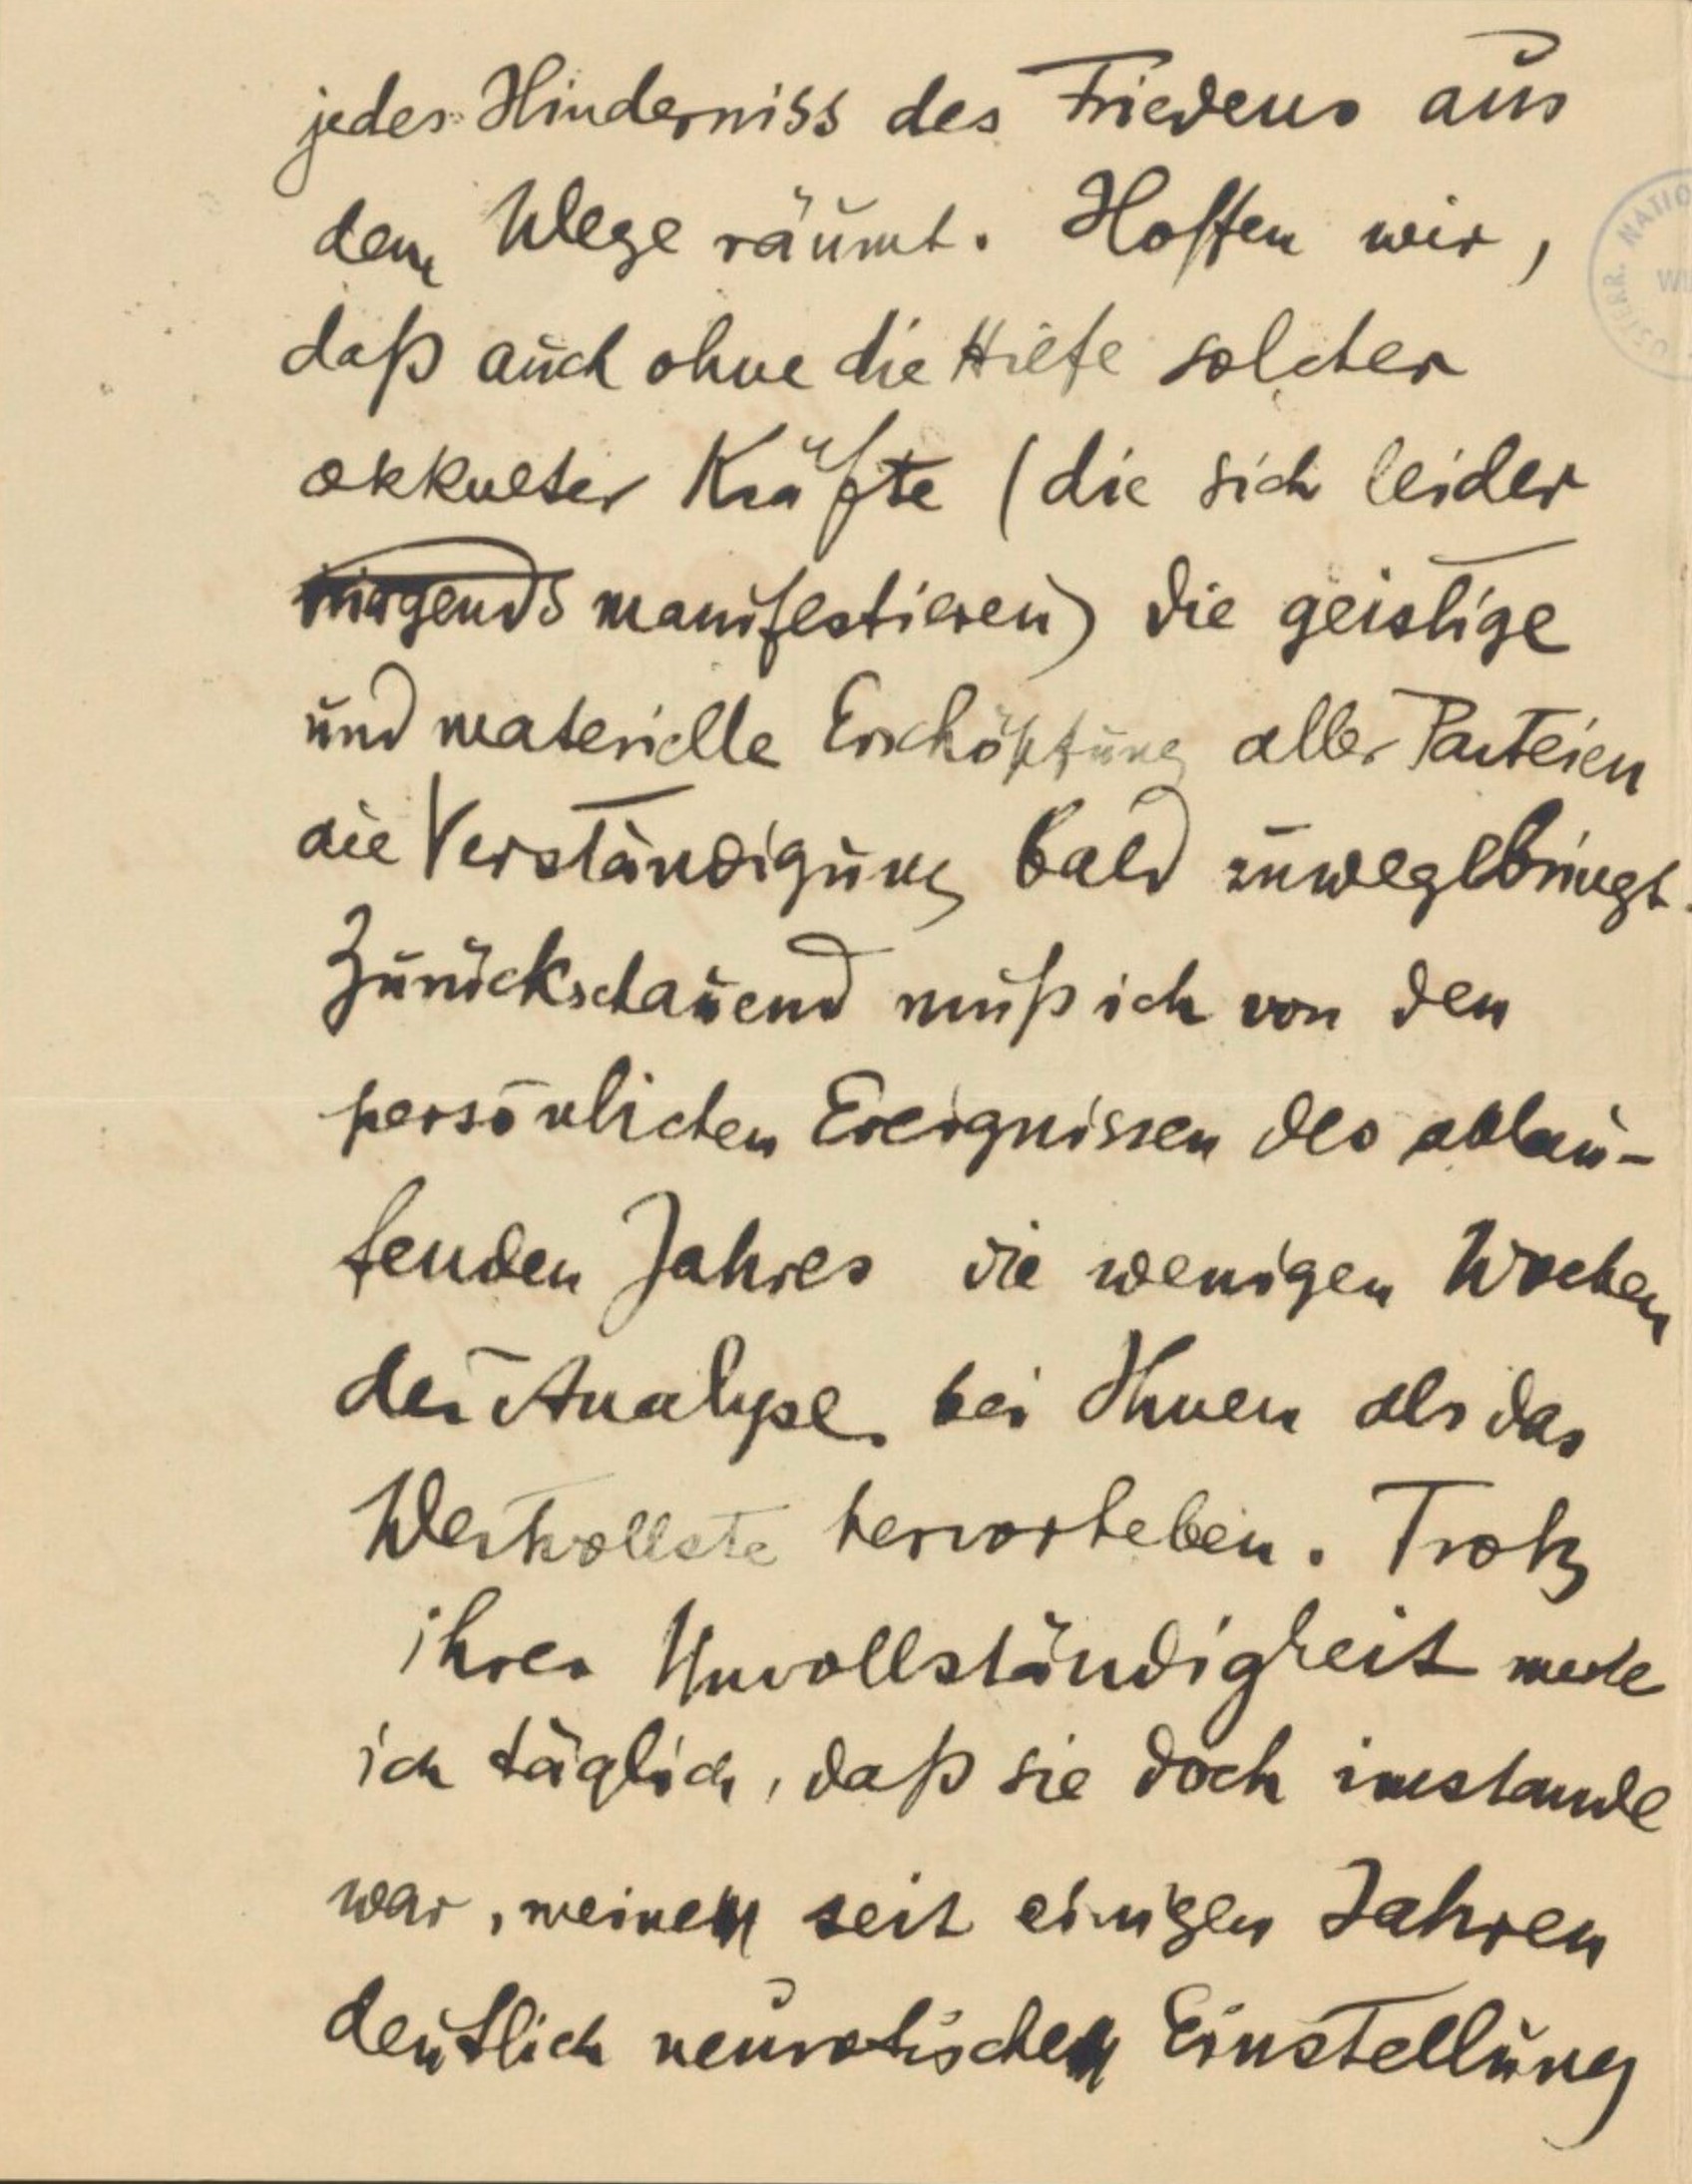 jedes Hinderniss des Friedens aus
dem Wege räumt. Hoffen wir,
daß auch ohne die Hilfe solcher
okkulter Kräfte (die sich leider
nirgends manifestieren) die geistige
und materielle Erschöpfung aller Parteien
die Verständigung bald zuwegebringt.
Zurückschauend muß ich von den
persönlichen Ereignissen des ablau-
fenden Jahres die wenigen Wochen
der Analyse bei Ihnen als das
Wertvollste hervorheben. Trotz
ihrer Unvollständigkeit merke
ich täglich, daß sie doch imstande
war, meinen seit einigen Jahren
deutlich neurotischen Einstellung
NATIO
WI